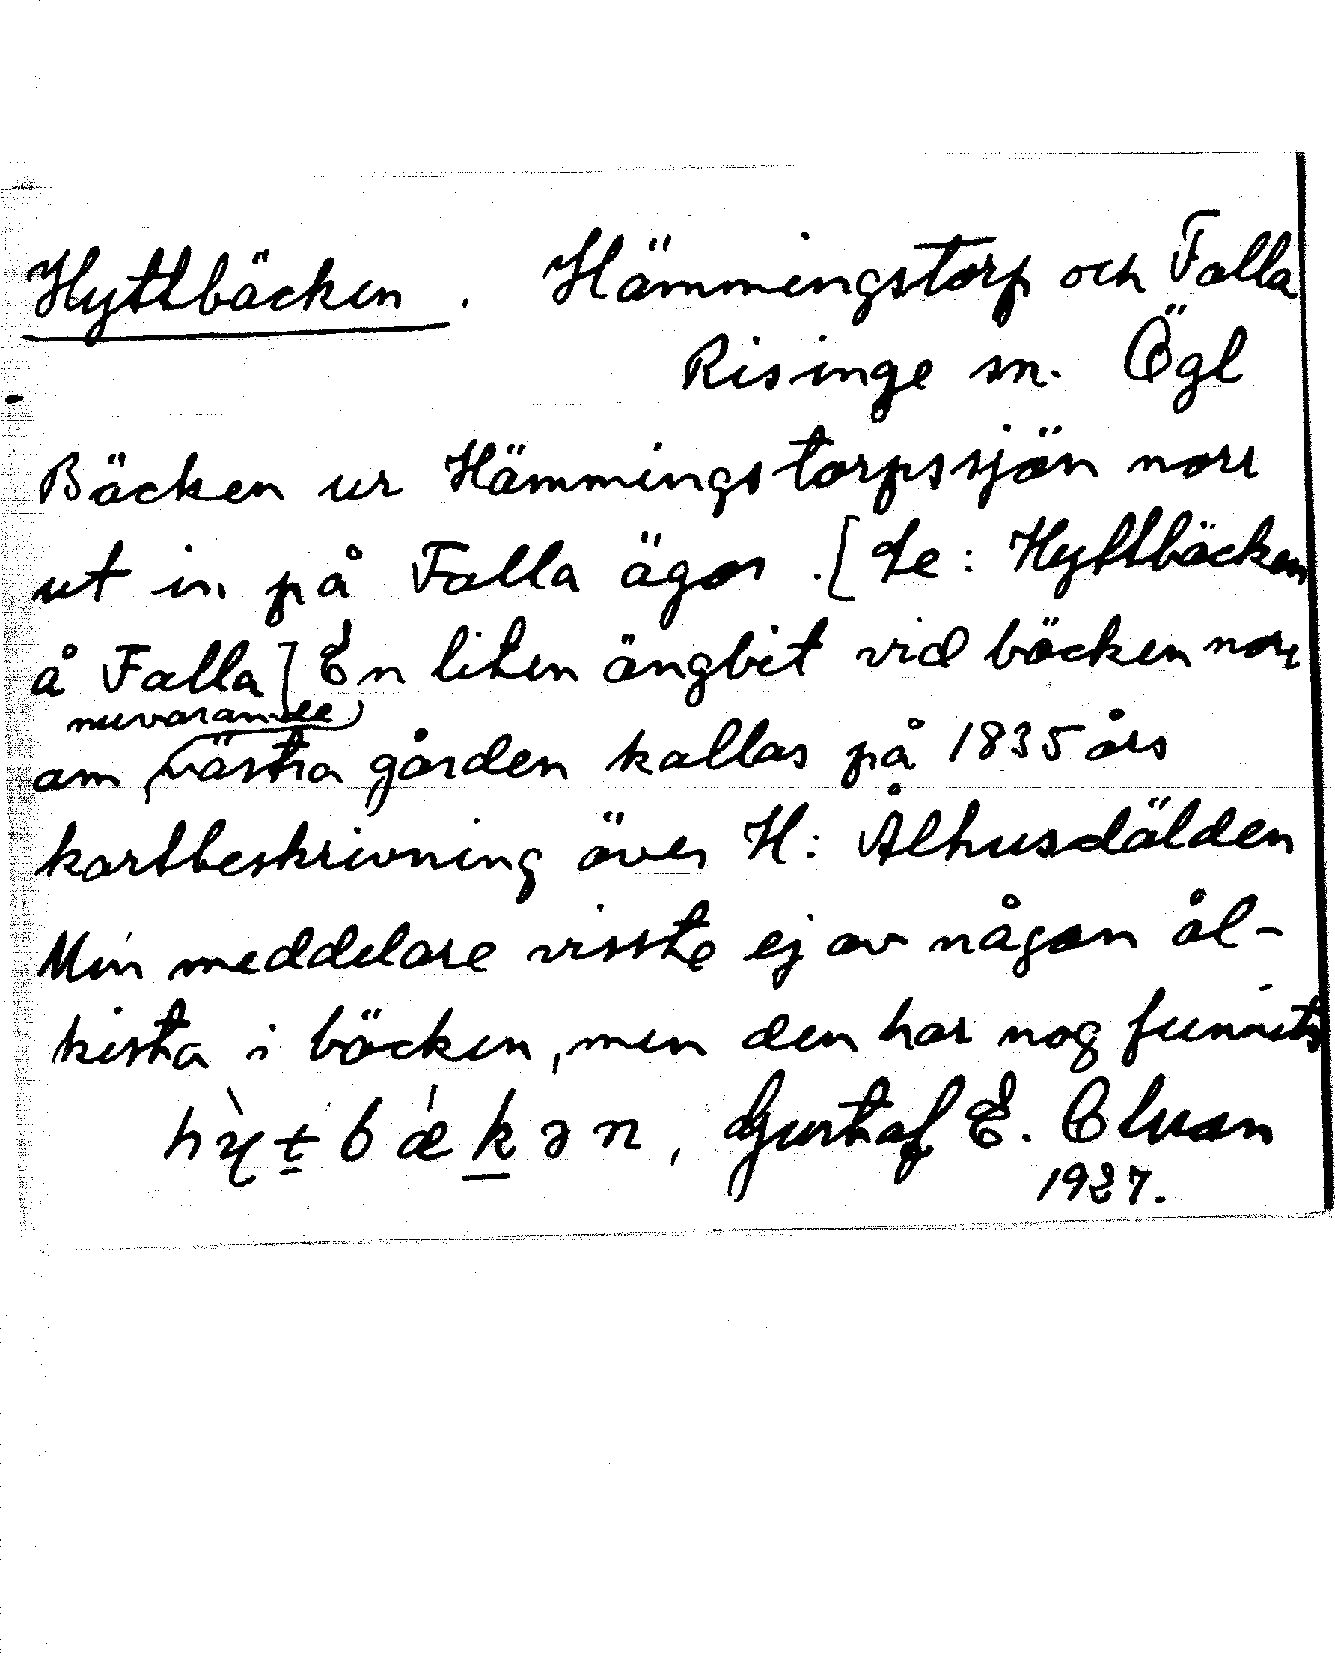 Hyttbäcken. Hämmingstorp och Falla
Risinge sn. Ögl
Bäcken ur Hämmingstorpssjön norr
ut in på Falla ägor. [Se: Hyttbäcken
å Falla] En liten ängbit vid bäcken norr
nuvarande
om västra gården kallas på 1835 års
kartbeskrivning över H: Ålhusdälden
Min meddelare visste ej av någon ål-
kista i bäcken, men den har nog funnits
hỳtbǽkən, Gustaf E. Elvson
1927.